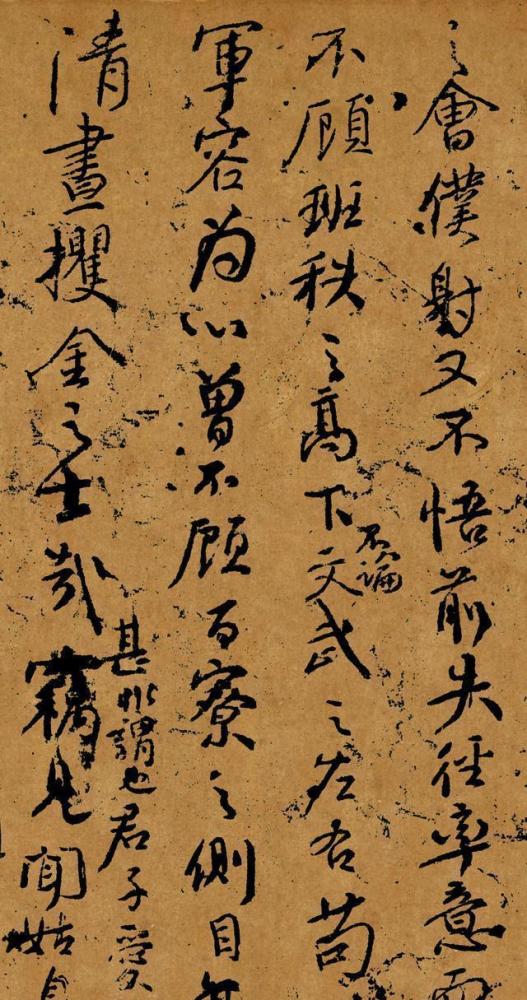 之會僕射又不悟前失徑率意而
不顧班秩之高下不論文武之左右苟
軍容為心曾不顧百寮之側目
清晝攫金之士哉
甚非謂也君子愛
竊見聞姑